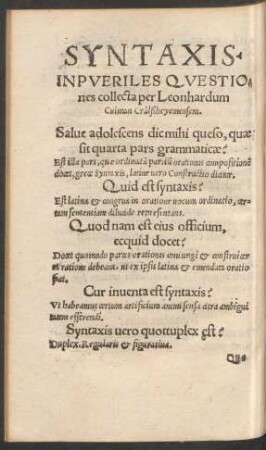 SYNTAXIS
INPVERILES QVESTIO
nes collecta per Leonhardum
Culman
Salue adolescens dic mihi queso, quæ
sit quarta pars grammaticæ?
Est illa pars, quæ ordinatā partiū orationis compositionē
docet, græce Syntaxis, latine uero Constructio dicitur.
Quid est syntaxis?
Est latina & congrua in oratione uocum ordinatio, cer-
tam sententiam dilucide representans.
Quod nam est eius officium,
ecquid docet?
Docet quomodo partes orationis coniungi & construi in
oratione debeant, ut ex ipsis latina & emendata oratio
fiat.
Cur inuenta est syntaxis?
Vt habeamus certum artificium animi sensa citra ambigui
tatem efferendi.
Syntaxis uero quottuplex est?
Duplex, Regularis & figuratiua.